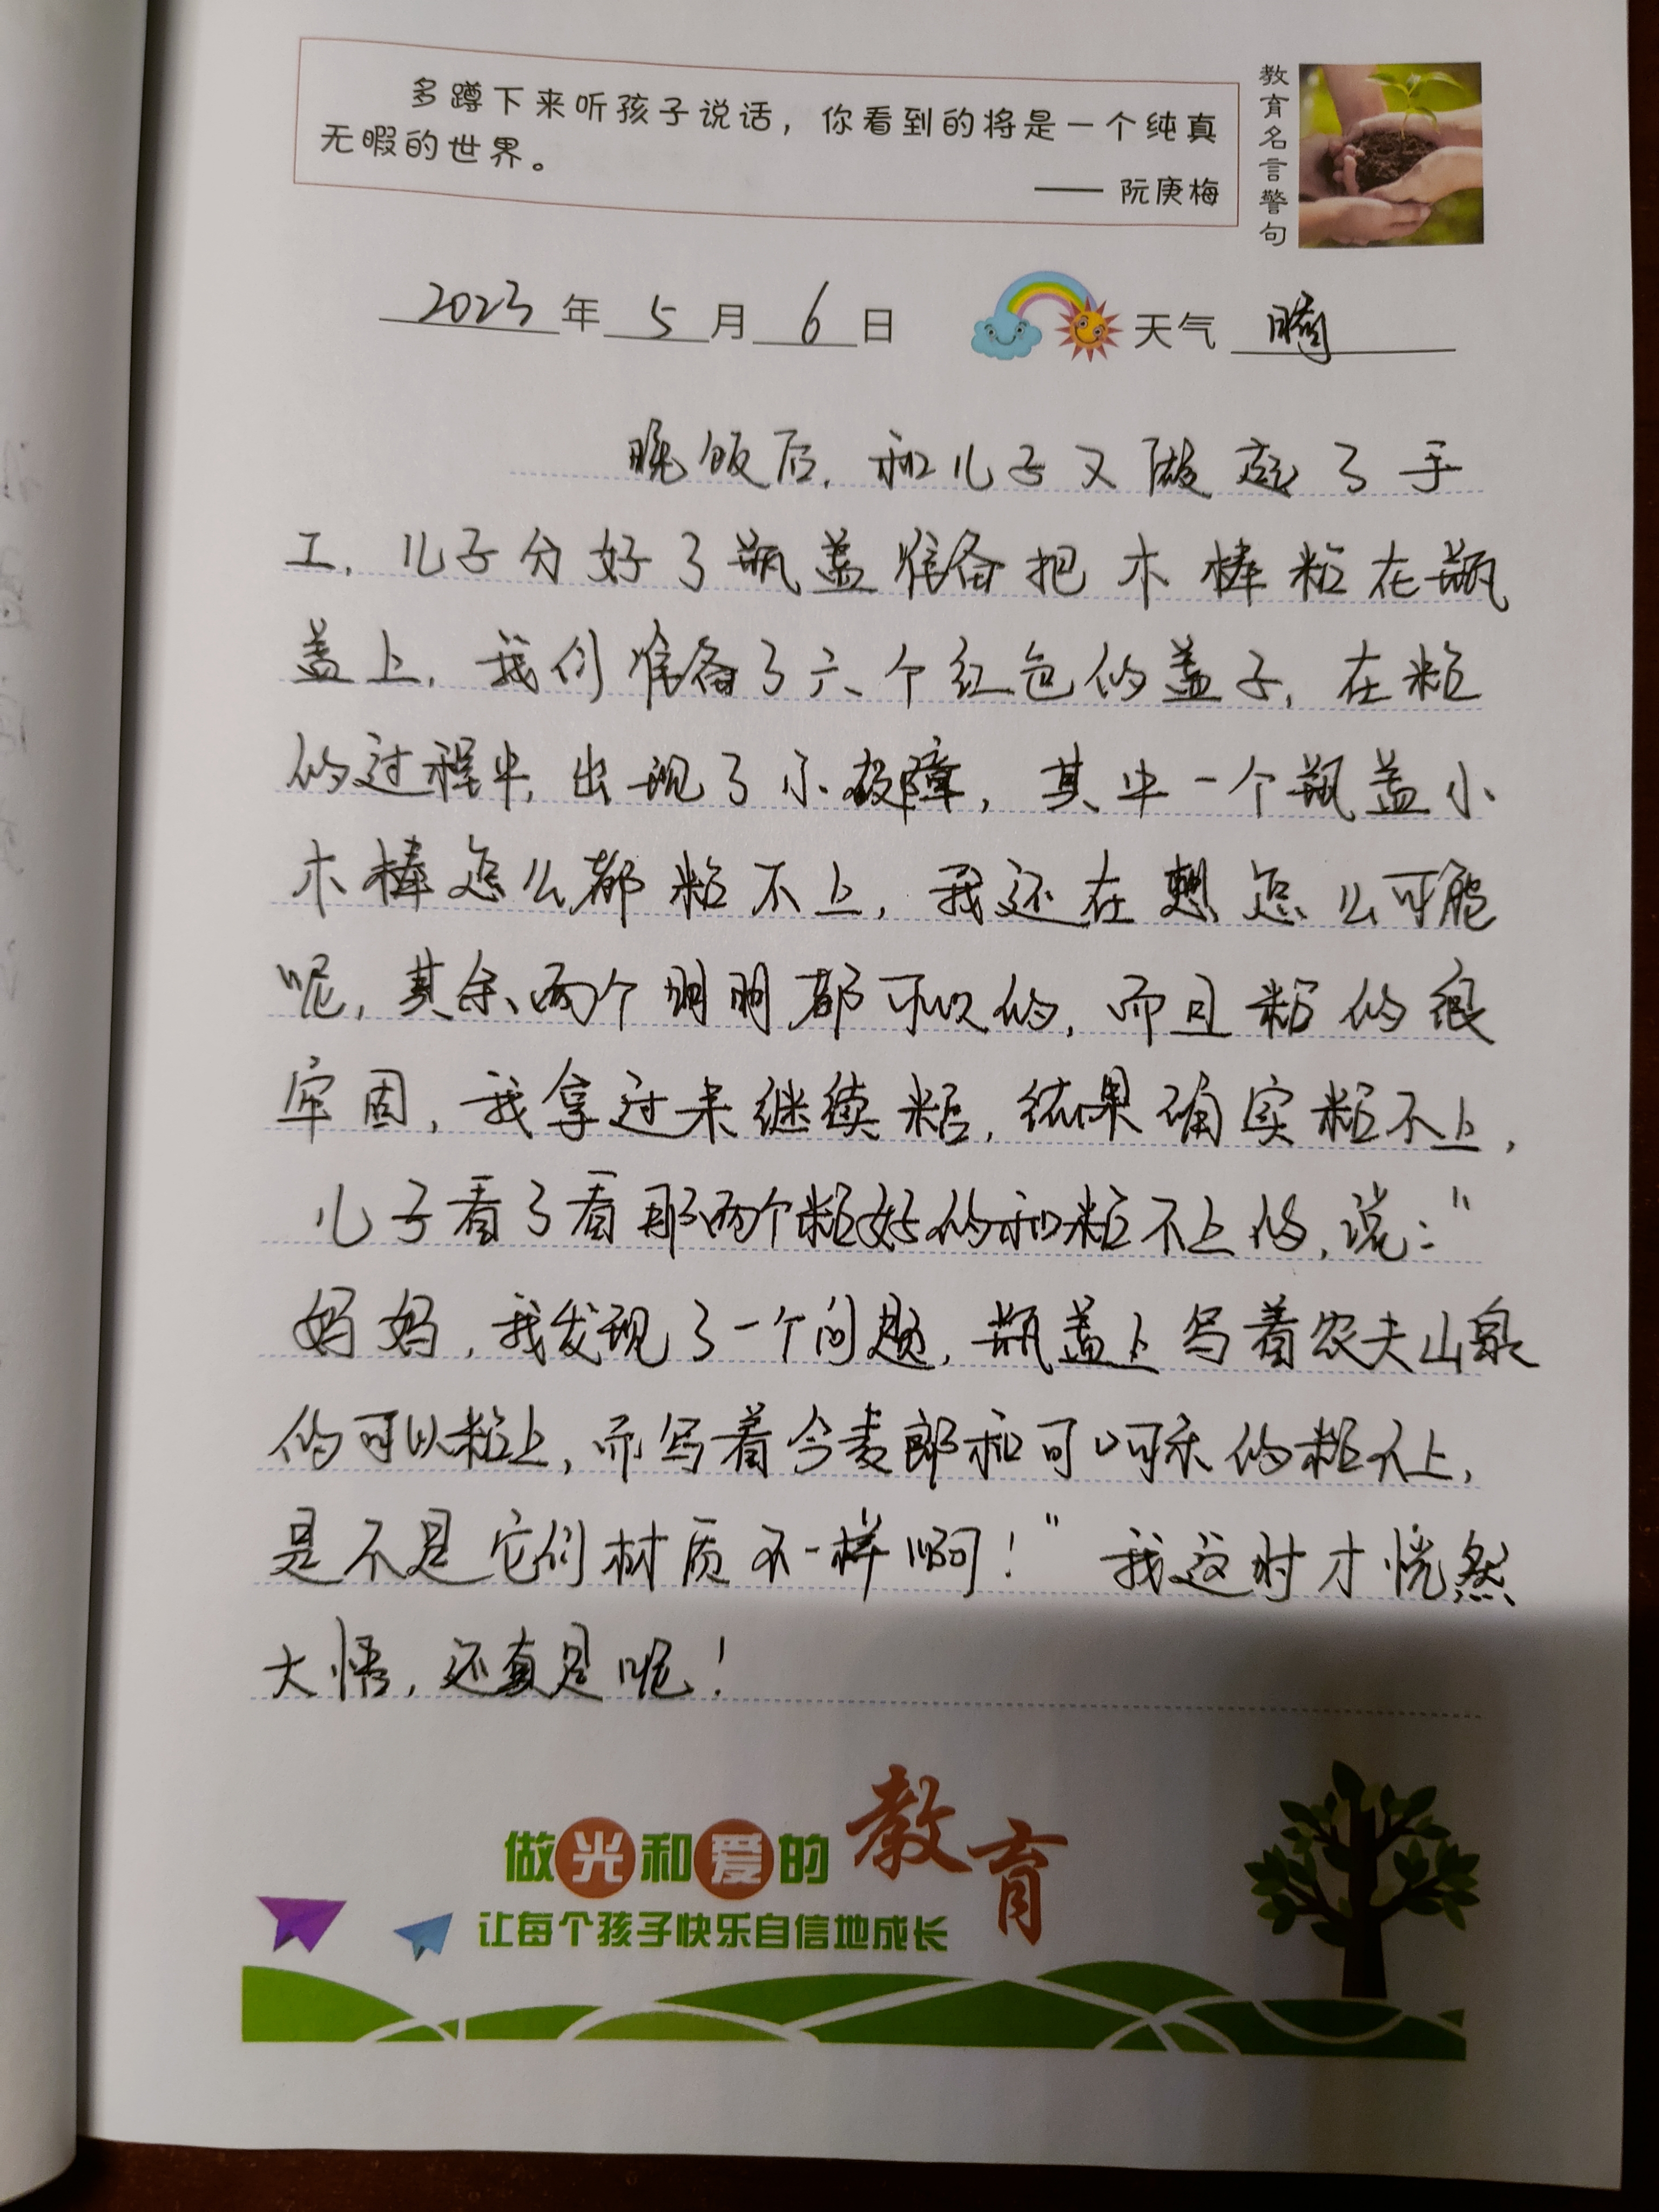 多蹲下来听孩子说话，你看到的将是一个纯真
无暇的世界。
—— 阮庚梅
教育名言警句
2023年 5 月 6 日 天气 晴
晚饭后，和儿子又做起了手
工，儿子分好了瓶盖准备把木棒粘在瓶
盖上，我们准备了六个红色的盖子，在粘
的过程中，出现了小故障，其中一个瓶盖小
木棒怎么都粘不上，我还在想怎么可能
呢，其余两个明明都可以的，而且粘的很
牢固，我拿过来继续粘，结果确实粘不上，
儿子看了看那两个粘好的和粘不上的，说："
妈妈，我发现了一个问题，瓶盖上写着农夫山泉
的可以粘上，而写着今麦郎和可口可乐的粘不上，
是不是它们材质不一样啊！"我这时才恍然
大悟，还真是呢！
做光和爱的教育
让每个孩子快乐自信地成长